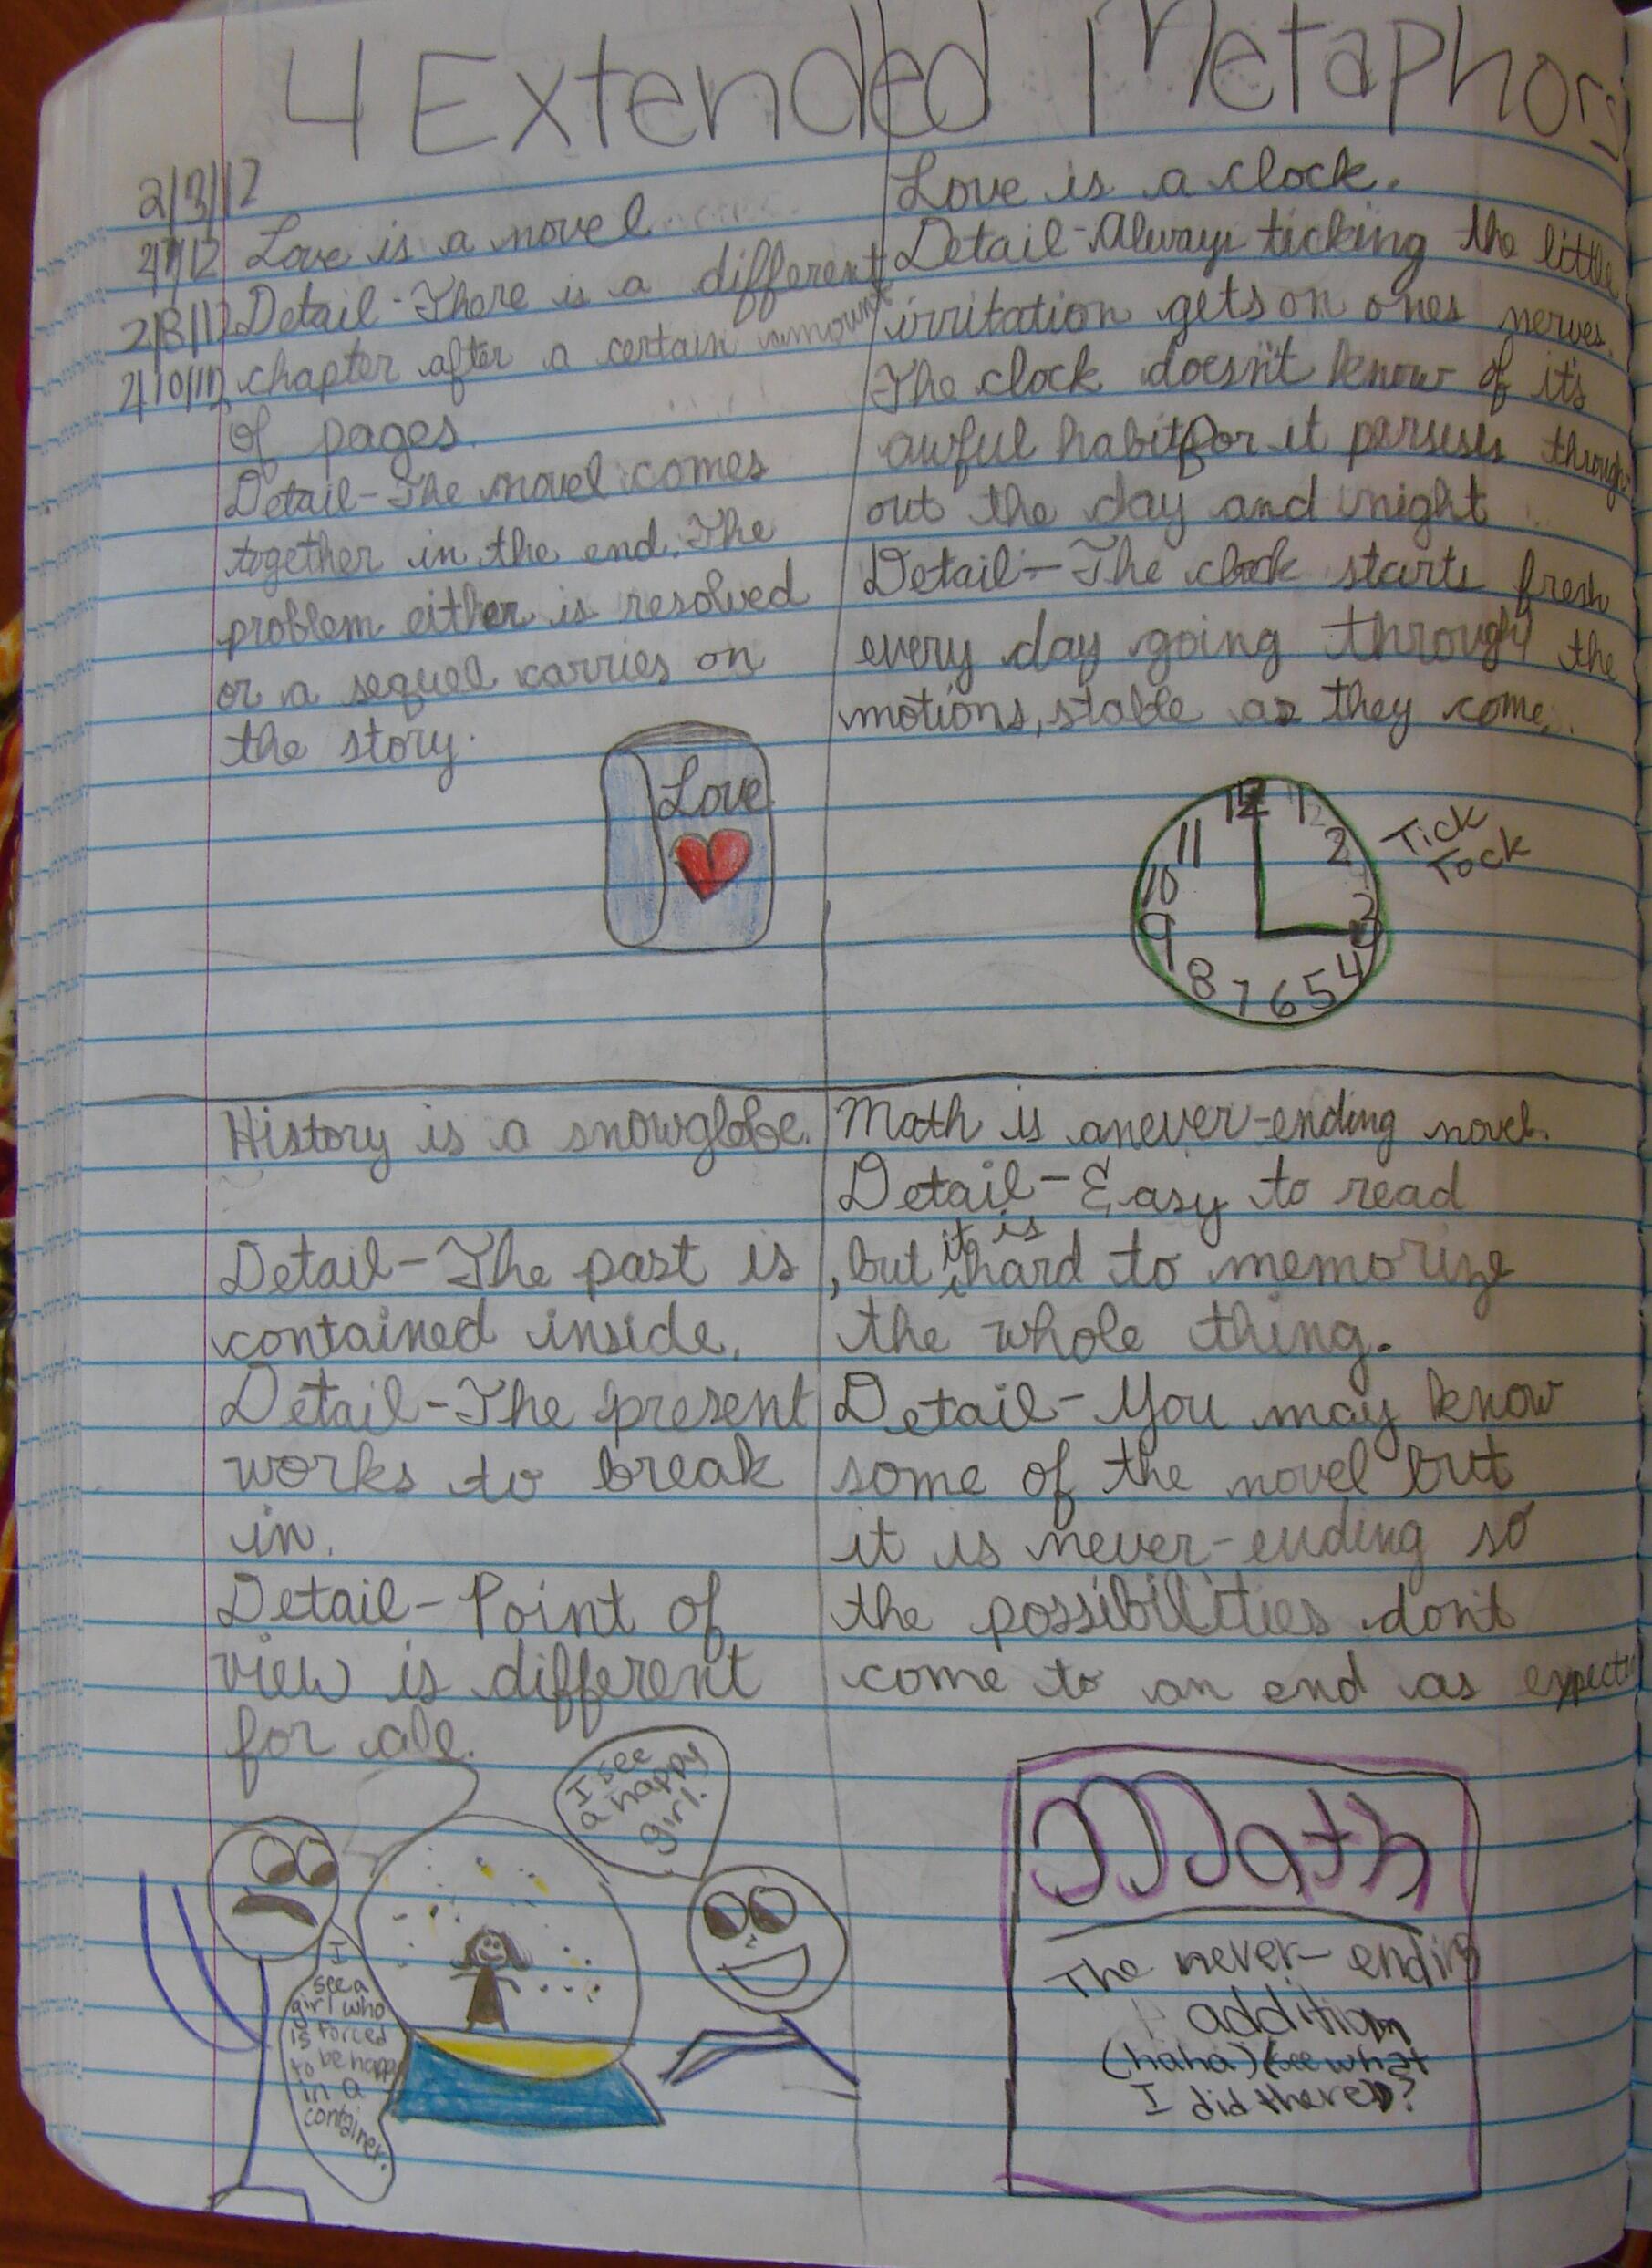 4 Extended Metaphors
2/3/12
2/7/12
2/8/12
2/10/12
Love is a novel
Detail - There is a different
chapter after a certain ammount
of pages.
Detail - The novel comes
together in the end. The
problem either is resolved
or a sequel carries on
the story.
Love
Love is a clock.
Detail - Always ticking the little
irritation gets on ones nerves.
The clock doesn't know of it's
awful habit for it persists through-
out the day and night
Detail - The clock starts fresh
every day going through the
motions, stable as they come.
12
1
2
3
4
5
6
7
8
9
10
11
Tick
Tock
History is a snowglobe.
Detail - The past is
contained inside.
Detail - The present
works to break
in.
Detail - Point of
view is different
for all.
I see
a happy
girl.
I
see a
girl who
is forced
to be happy
in a
container.
Math is a never-ending novel.
Detail - Easy to read
, but it is hard to memorize
the whole thing.
Detail - You may know
some of the novel but
it is never-ending so
the possibilities don't
come to an end as expected
Math
The never-ending
addition
(haha) (see what
I did there)?